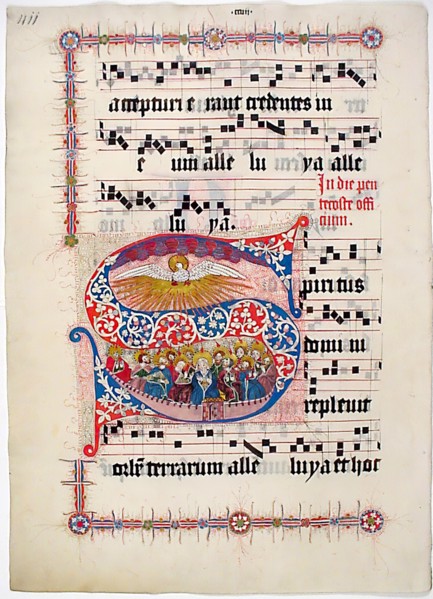 ·cxvij·
accepturi e rant credentes in
e um alle lu ya alle
lu ya.
In die pen
tecoste offi
cium.
Spiritus
domini
repleuit
orbē terrarum alle luya et hoc